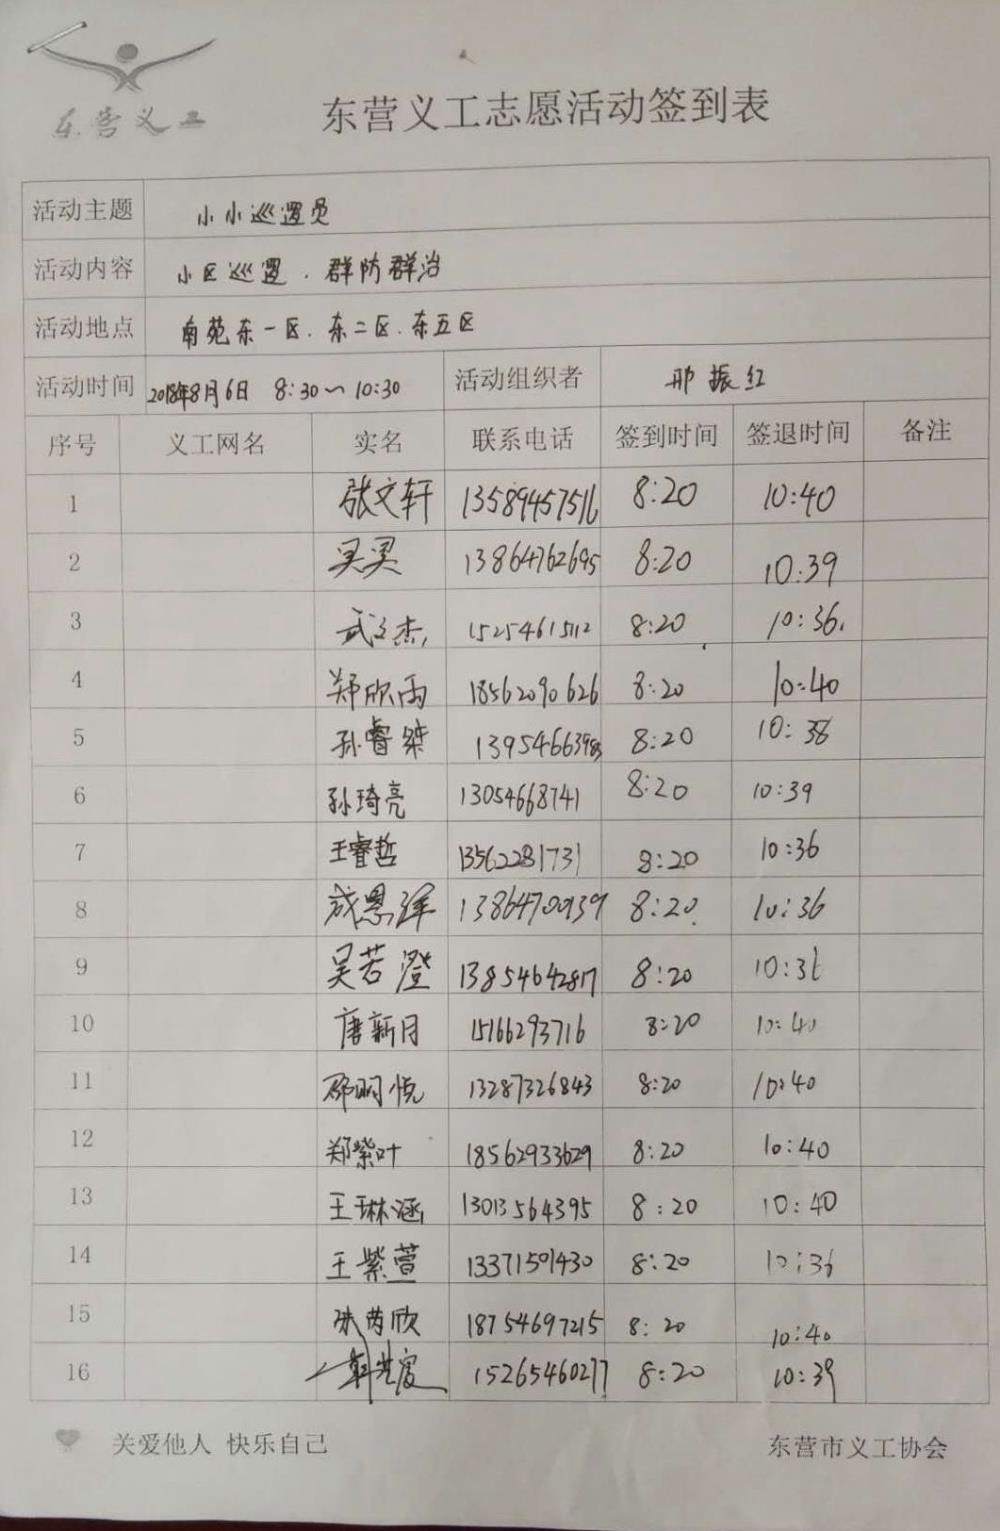 东营义工
东营义工志愿活动签到表
活动主题 小小巡逻员
活动内容 小区巡逻.群防群治
活动地点 南苑东一区.东二区.东五区
活动时间 2018年8月6日 8:30～10:30 活动组织者 邢振红
序号 义工网名 实名 联系电话 签到时间 签退时间 备注
1 张文轩 13589457516 8:20 10:40
2 13864762695 8:20 10:39
3 武文杰 15254615112 8:20 10:36
4 郑欣雨 18562090626 8:20 10:40
5 孙睿桀 8:20 10:38
6 孙琦亮 13054668741 8:20 10:39
7 王睿哲 13562281731 8:20 10:36
8 成恩泽 13864700939 8:20 10:36
9 吴若澄 13854642817 8:20 10:36
10 唐新月 15166293716 8:20 10:40
11 邵明悦 13287326843 8:20 10:40
12 郑紫叶 18562933629 8:20 10:40
13 王琳涵 13013564395 8:20 10:40
14 王紫萱 13371509430 8:20 10:36
15 18754697215 8:20 10:40
16 15265460277 8:20 10:39
关爱他人 快乐自己 东营市义工协会